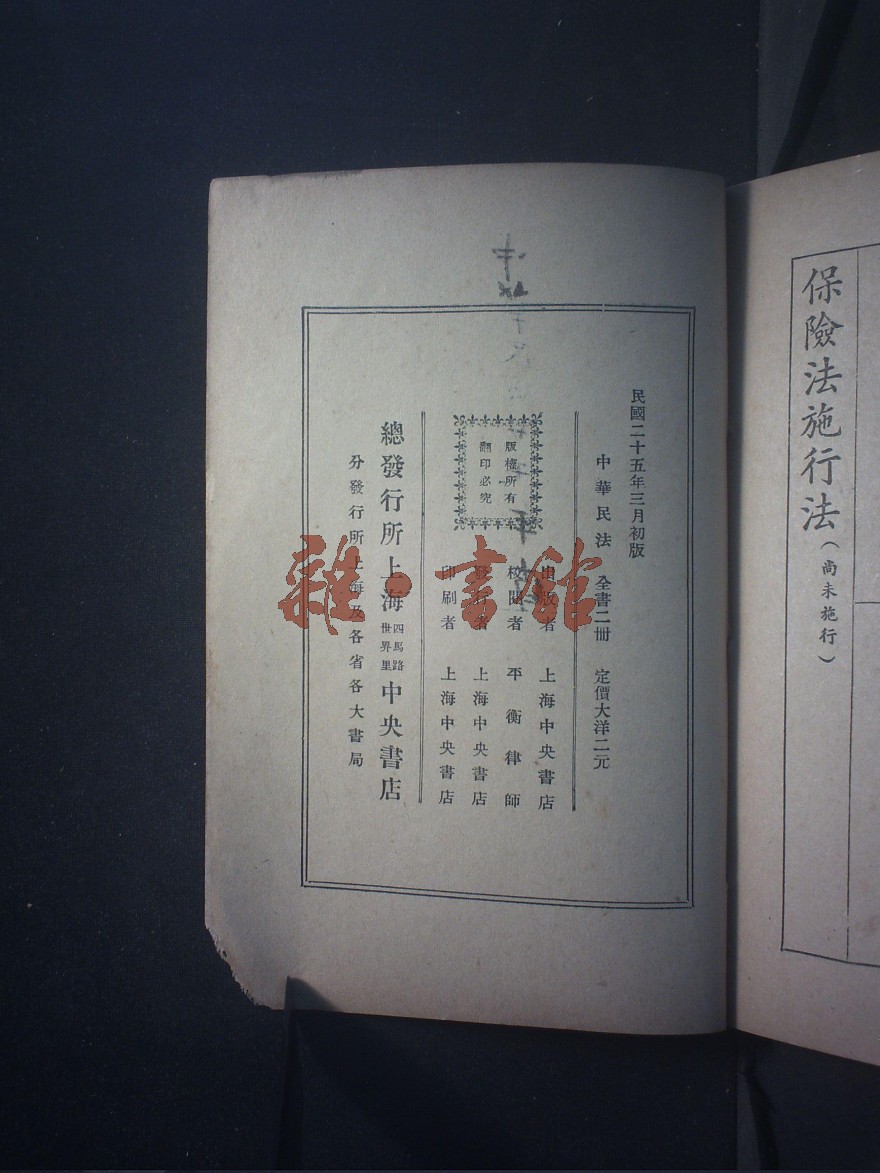 保險法施行法（尚未施行）
民國二十五年三月初版
中華民法 全書二冊 定價大洋二元
出版者 上海中央書店
校閱者 平衡律師
發行者 上海中央書店
印刷者 上海中央書店
版權所有
翻印必究
總發行所上海四馬路世界里中央書店
分發行所上海及各省各大書局
雜·書館